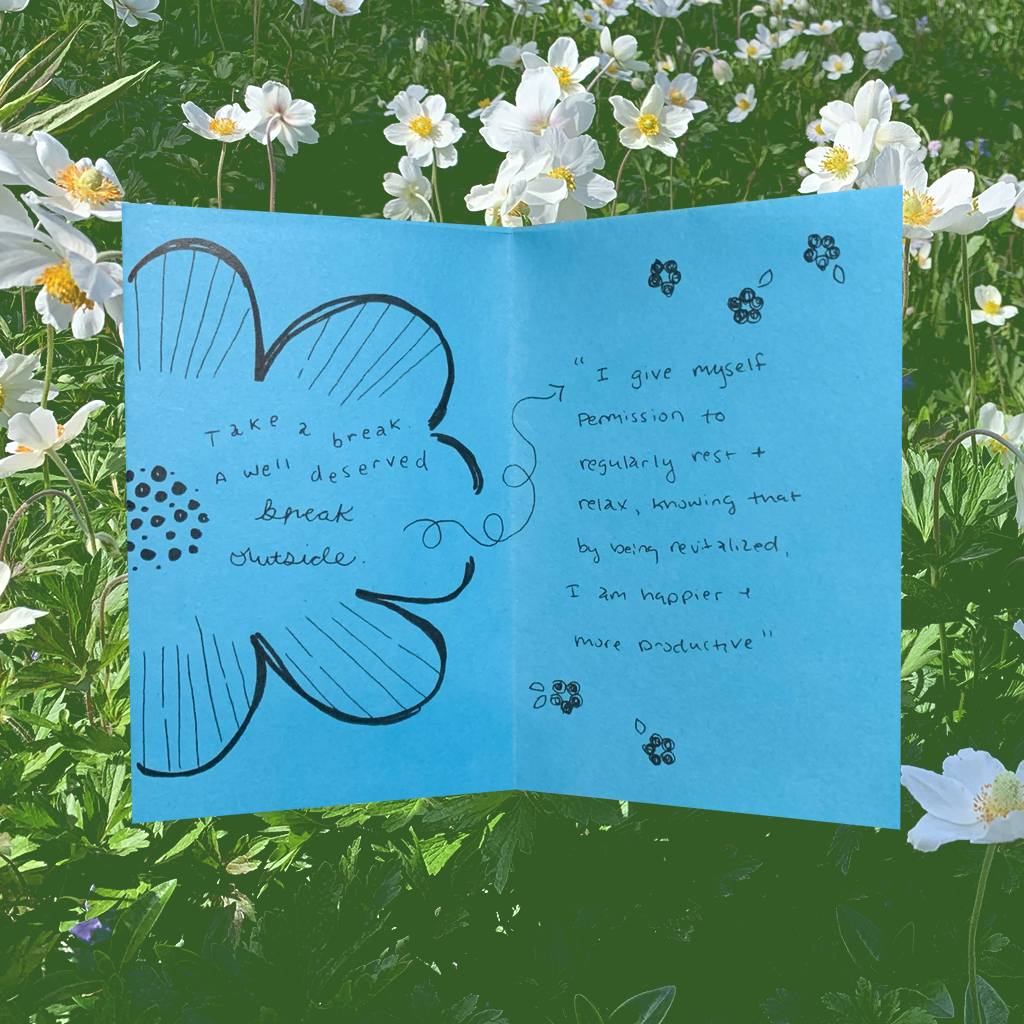 Take a break.
A well deserved
break
outside.
"I give myself
permission to
regularly rest +
relax, knowing that
by being revitalized,
I am happier +
more productive"